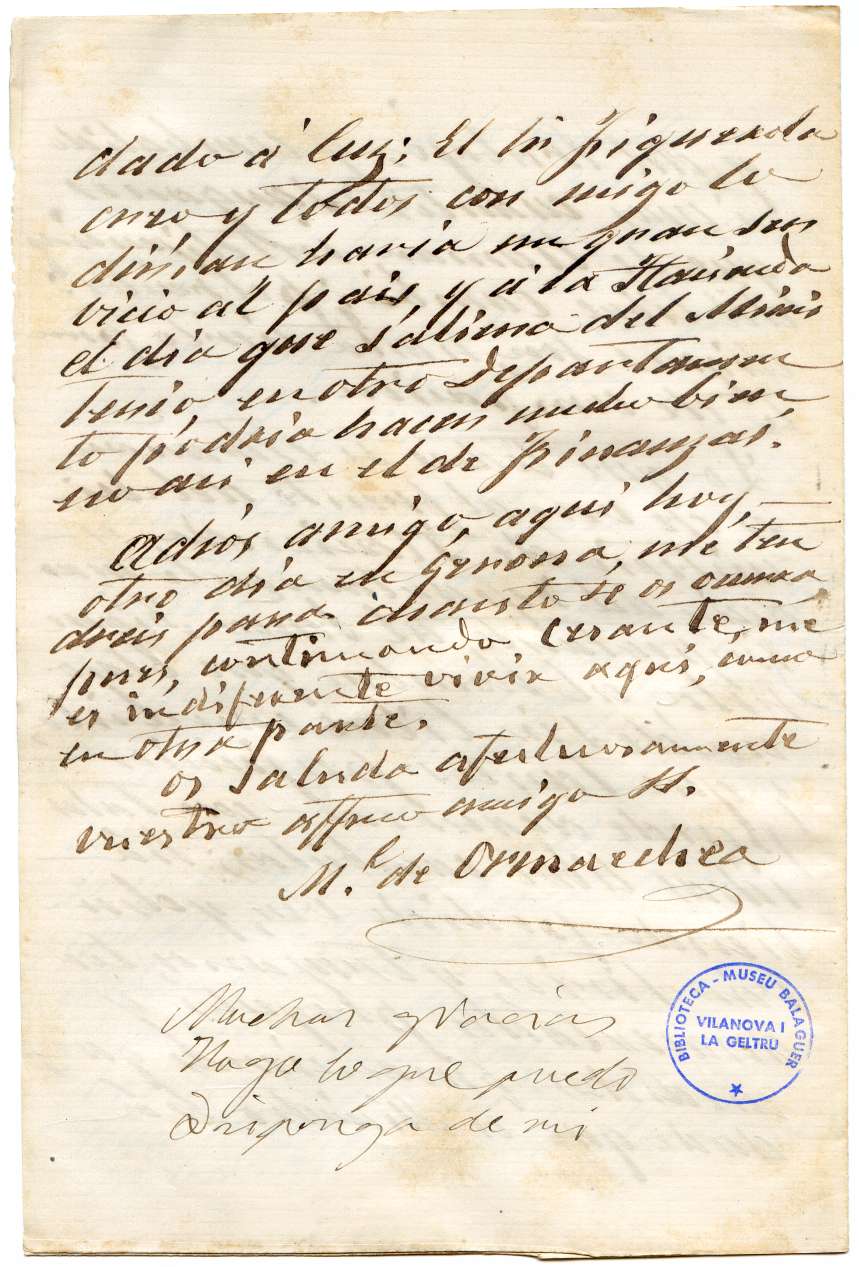 dado á luz; El Sr Figuerola
creo y todos con migo lo
dirian haria un gran ser
vicio al pais, y á la Hacienda
el dia que saliera del Minis
terio, en otro Departamen
to podria hacer mucho bien
no asi en el de Finanzas.
Adiós amigo, aqui hoy,
otro dia en Gerona, me ten
dreis para cuanto se os ocurra
pues, continuando cesante, me
es indiferente vivir aqui, como
en otra parte.
os saluda afectuosamente
vuestro affmo amigo S.
M.l de Ormaechea
Muchas gracias
Hago lo que puedo
Disponga de mi
BIBLIOTECA - MUSEU BALAGUER
VILANOVA I
LA GELTRU